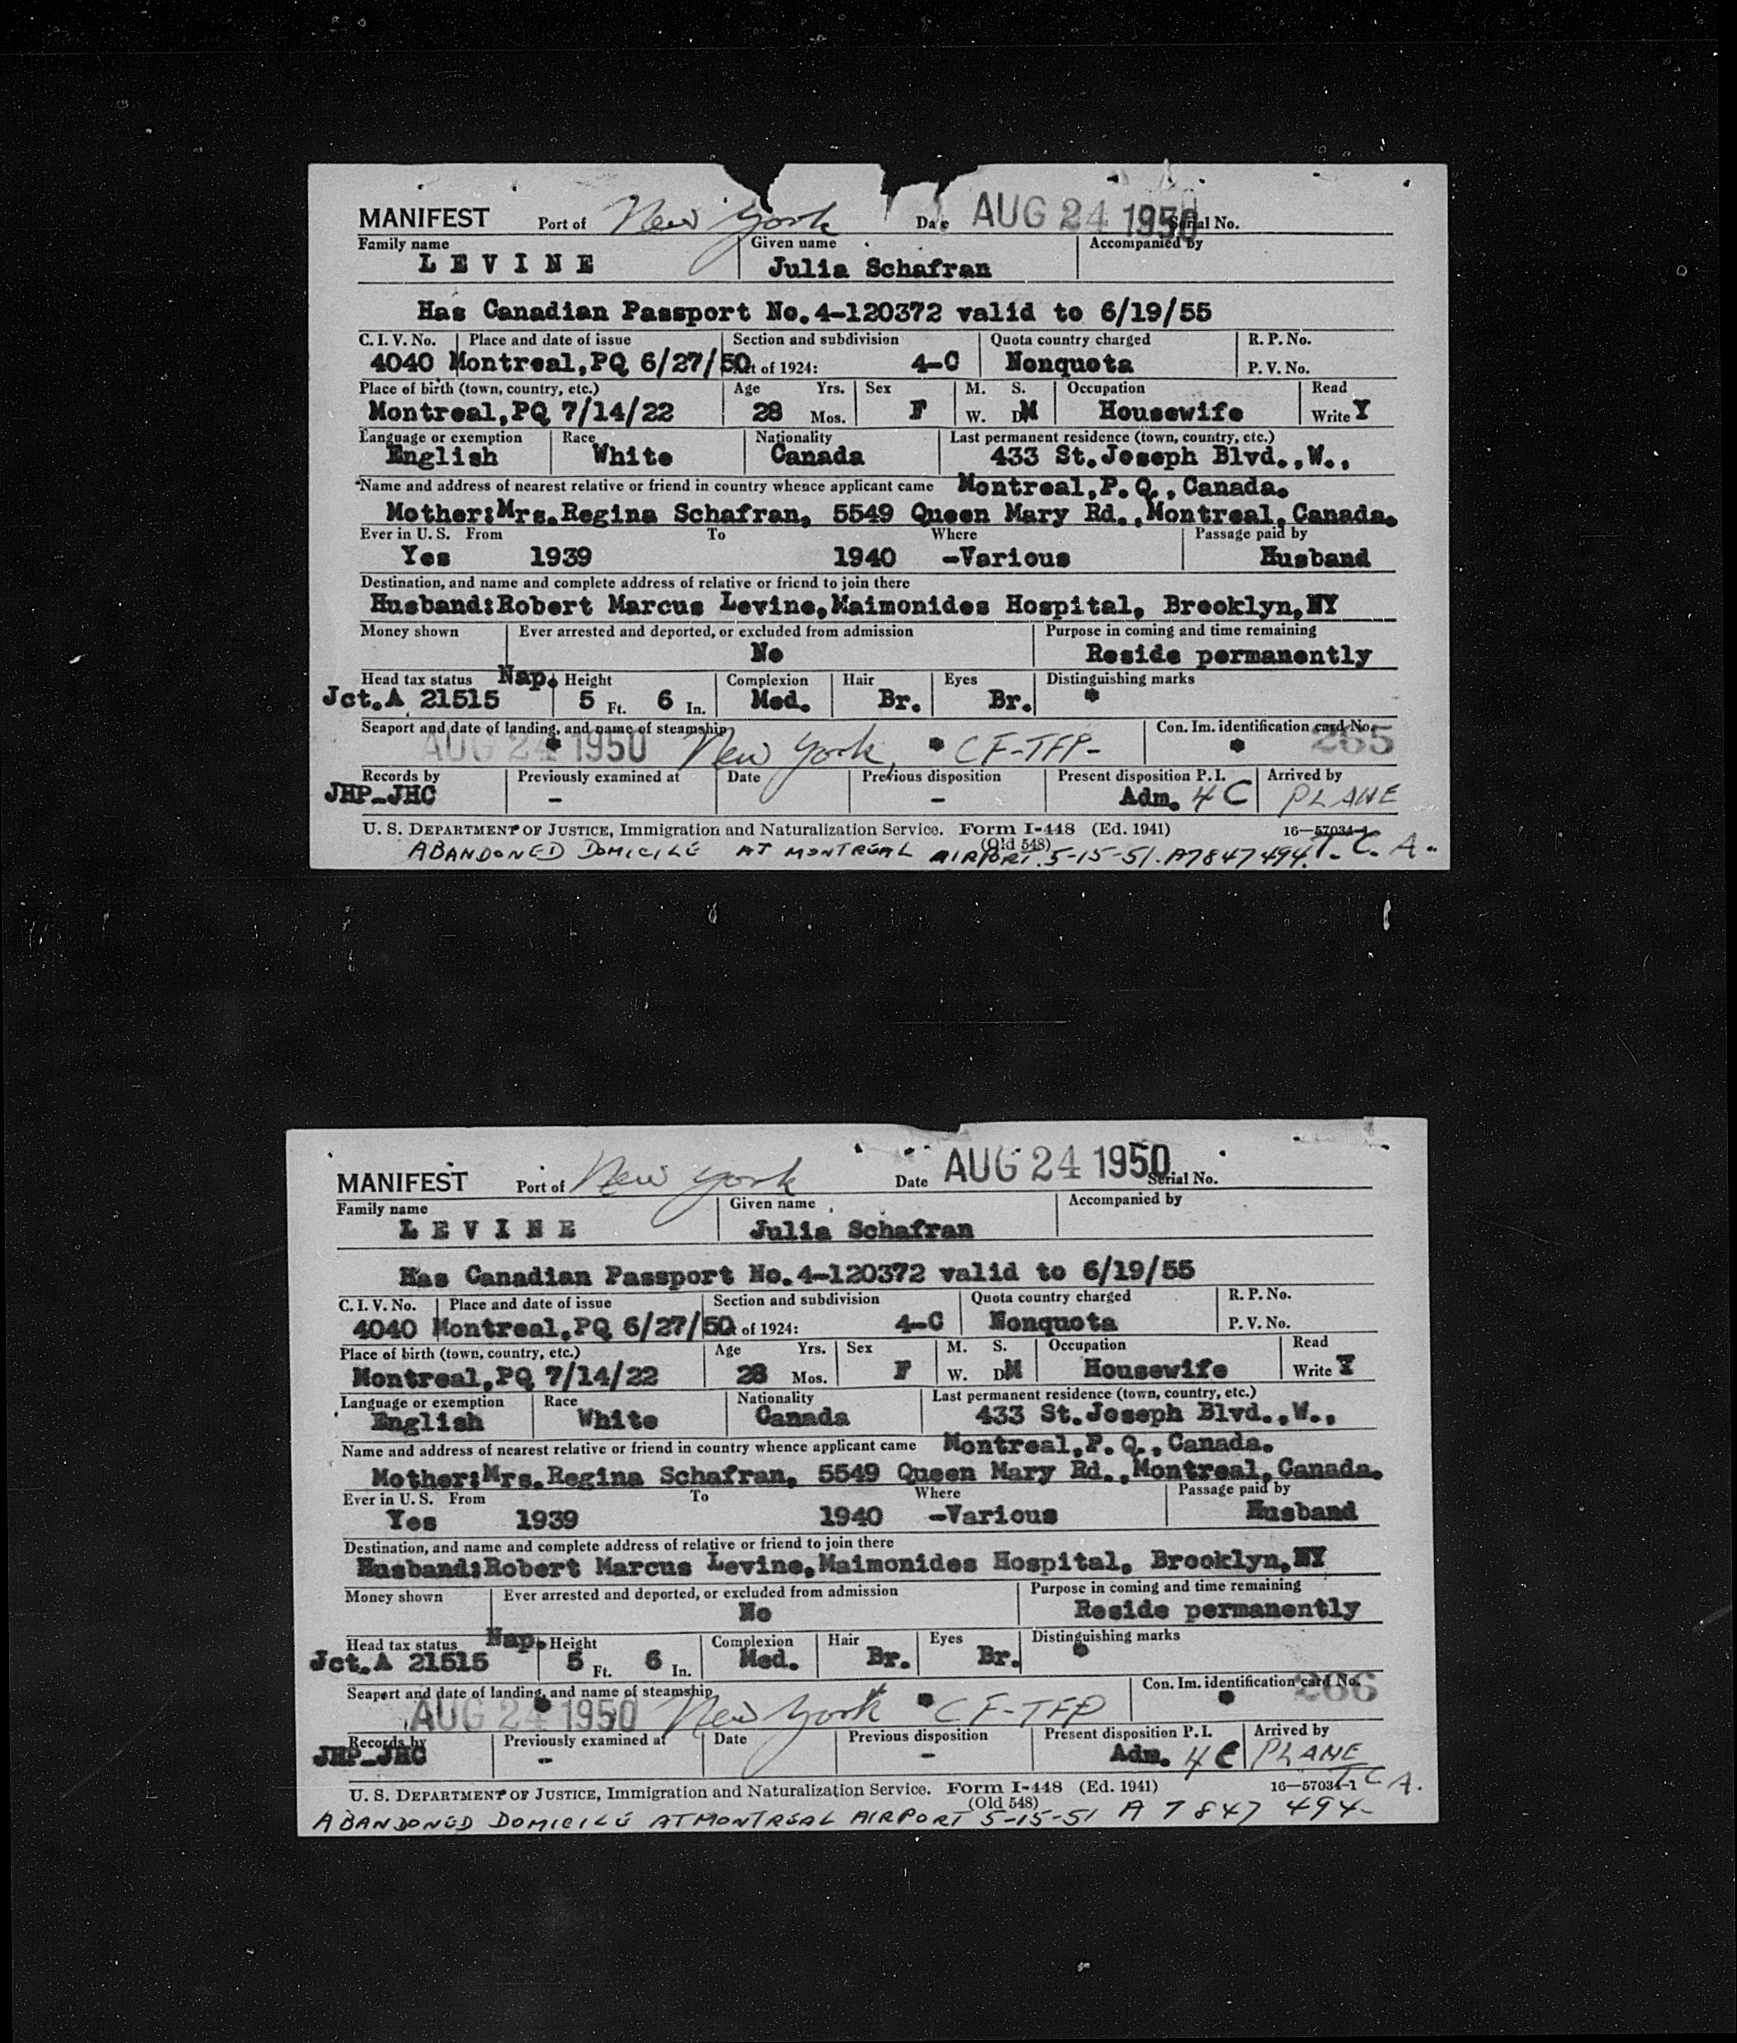 MANIFEST Port of New York Date AUG 24 1950 Serial No.
Family name Given name Accompanied by
LEVINE Julia Schafran
Has Canadian Passport No.4-120372 valid to 6/19/55
C. I. V. No. Place and date of issue Section and subdivision Quota country charged R. P. No.
4040 Montreal,PQ 6/27/50 of 1924: 4-C Nonquota P. V. No.
Place of birth (town, country, etc.) Age Yrs. Sex M. S. Occupation Read
Montreal,PQ 7/14/22 28 Mos. F W. D M Housewife Write Y
Language or exemption Race Nationality Last permanent residence (town, country, etc.)
English White Canada 433 St.Joseph Blvd.,W.,
Name and address of nearest relative or friend in country whence applicant came Montreal,P.Q.,Canada.
Mother:Mrs.Regina Schafran, 5549 Queen Mary Rd.,Montreal,Canada.
Ever in U. S. From To Where Passage paid by
Yes 1939 1940 -Various Husband
Destination, and name and complete address of relative or friend to join there
Husband:Robert Marcus Levine,Maimonides Hospital, Brooklyn,NY
Money shown Ever arrested and deported, or excluded from admission Purpose in coming and time remaining
No Reside permanently
Head tax status Nap. Height Complexion Hair Eyes Distinguishing marks
Jct.A 21515 5 Ft. 6 In. Med. Br. Br. *
Seaport and date of landing, and name of steamship Con. Im. identification card No.
AUG 24 1950 * New York, * CF-TFP- * 265
Records by Previously examined at Date Previous disposition Present disposition P. I. Arrived by
JHP-JHC - - Adm. 4C PLANE
U. S. DEPARTMENT OF JUSTICE, Immigration and Naturalization Service. Form I-448 (Ed. 1941) 16—57034-1
(Old 548) T. C. A.
ABANDONED DOMICILE AT MONTREAL AIRPORT. 5-15-51. A7847494.
MANIFEST Port of New York Date AUG 24 1950 Serial No.
Family name Given name Accompanied by
LEVINE Julia Schafran
Has Canadian Passport No.4-120372 valid to 6/19/55
C. I. V. No. Place and date of issue Section and subdivision Quota country charged R. P. No.
4040 Montreal,PQ 6/27/50 of 1924: 4-C Nonquota P. V. No.
Place of birth (town, country, etc.) Age Yrs. Sex M. S. Occupation Read
Montreal,PQ 7/14/22 28 Mos. F W. D M Housewife Write Y
Language or exemption Race Nationality Last permanent residence (town, country, etc.)
English White Canada 433 St.Joseph Blvd.,W.,
Name and address of nearest relative or friend in country whence applicant came Montreal,P.Q.,Canada.
Mother:Mrs.Regina Schafran, 5549 Queen Mary Rd.,Montreal,Canada.
Ever in U. S. From To Where Passage paid by
Yes 1939 1940 -Various Husband
Destination, and name and complete address of relative or friend to join there
Husband:Robert Marcus Levine,Maimonides Hospital, Brooklyn,NY
Money shown Ever arrested and deported, or excluded from admission Purpose in coming and time remaining
No Reside permanently
Head tax status Nap. Height Complexion Hair Eyes Distinguishing marks
Jct.A 21515 5 Ft. 6 In. Med. Br. Br. *
Seaport and date of landing, and name of steamship Con. Im. identification card No.
AUG 24 1950 * New York * CF-TFP * 266
Records by Previously examined at Date Previous disposition Present disposition P. I. Arrived by
JHP-JHC - - Adm. 4C PLANE
U. S. DEPARTMENT OF JUSTICE, Immigration and Naturalization Service. Form I-448 (Ed. 1941) 16—57034-1 T C A.
(Old 548)
ABANDONED DOMICILE AT MONTREAL AIRPORT 5-15-51 A 7847 494-